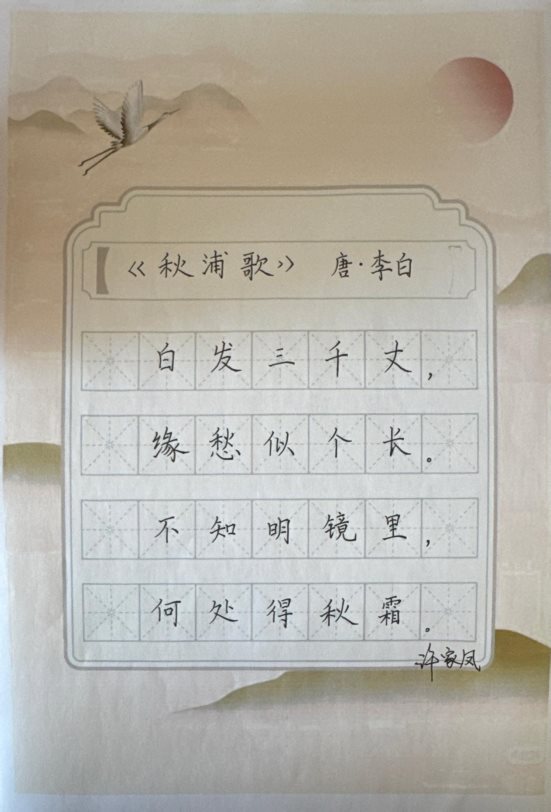 《秋浦歌》 唐·李白
白发三千丈，
缘愁似个长。
不知明镜里，
何处得秋霜。
许家凤